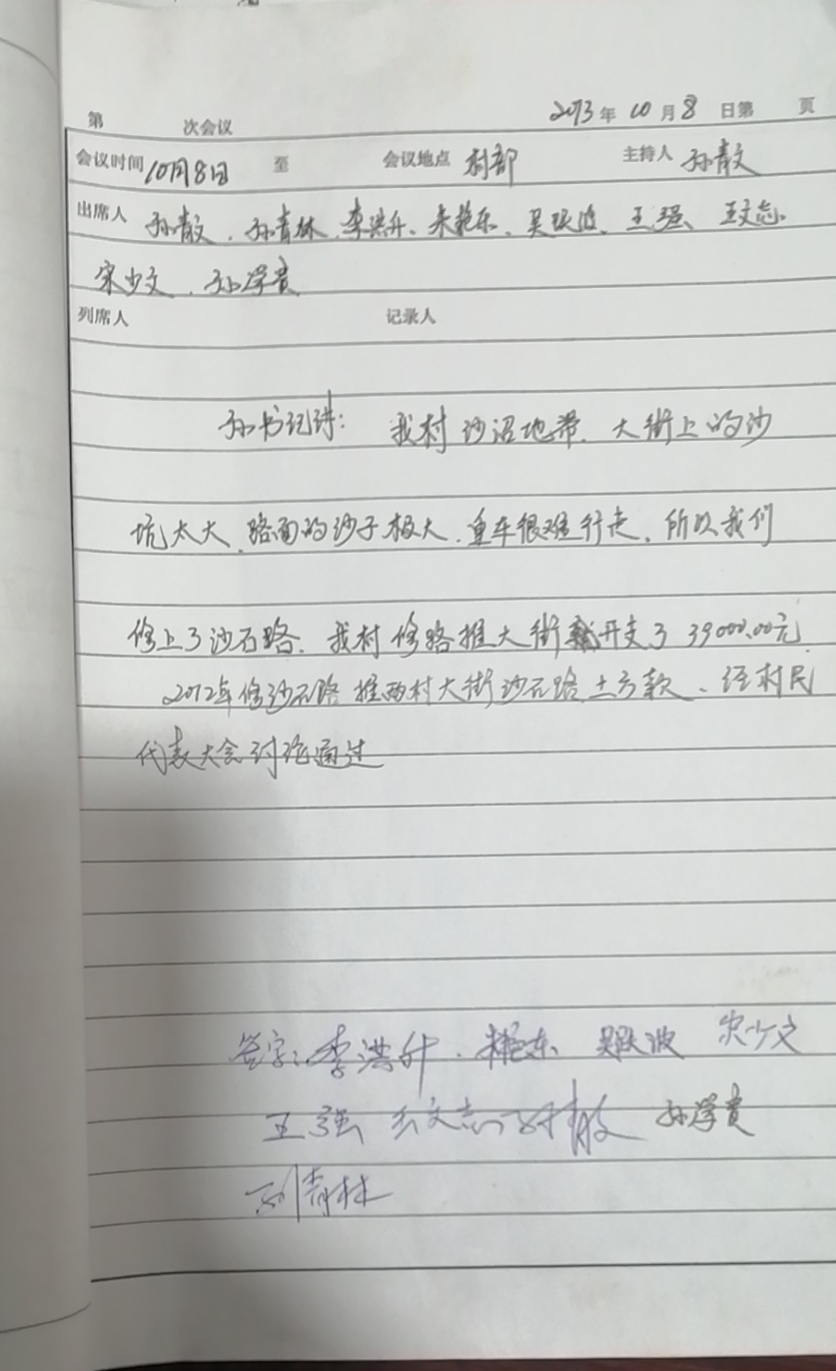 第 次会议 2013年10月8日第 页
会议时间 10月8日 至 会议地点 村部 主持人 孙青文
出席人 孙青文、孙青林、李洪升、朱艳东、吴跃波、王强、王文志
宋少文、孙学贵
列席人 记录人
孙书记讲: 我村沙沼地带、大街上的沙
坑太大、路面的沙子极大、重车很难行走、所以我们
修上了沙石路、我村修路推大街就开支了39000.00元
2012年修沙石路推两村大街沙石路土方款、经村民
代表大会讨论通过
签字: 李洪升、朱艳东 吴跃波 宋少文
王强 王文志 孙学贵
孙青林